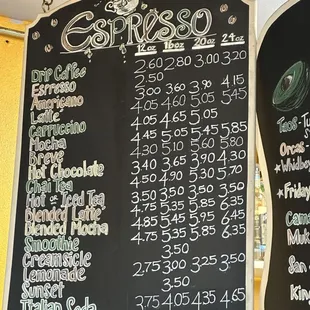 ESPRESSO
12oz 16oz 20oz 24oz
Drip Coffee 2.60 2.80 3.00 3.20
Espresso 2.50
Americano 3.00 3.60 3.90 4.15
Latte 4.05 4.60 5.05 5.45
Cappuccino 4.05 4.65 5.05
Mocha 4.45 5.05 5.45 5.85
Breve 4.30 5.10 5.60 5.80
Hot Chocolate 3.40 3.65 3.90 4.30
Chai Tea 4.50 4.90 5.30 5.70
Hot or Iced Tea 3.50 3.50 3.50 3.50
Blended Latte 4.75 5.35 5.85 6.35
Blended Mocha 4.85 5.45 5.95 6.45
Smoothie 4.75 5.35 5.85 6.35
Creamsicle 3.50
Lemonade 2.75 3.00 3.25 3.50
Sunset 3.50
Italian Soda 3.75 4.05 4.35 4.65
Taco-Tu
Orcas-
★Whidbey
★Friday
Cama
Muk
San
King